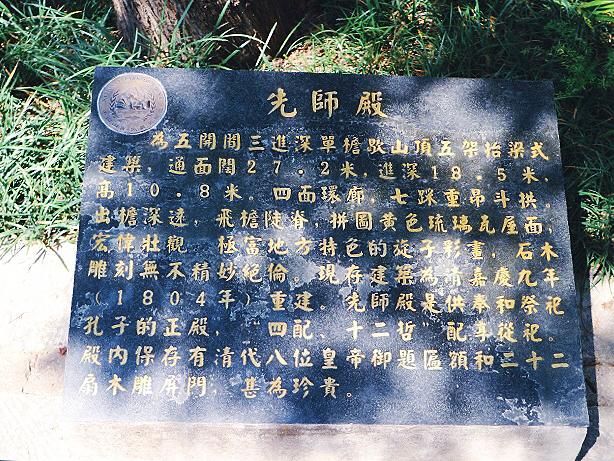 先師殿
為五開間三進深單檐歇山頂五架抬梁式
建築，通面闊27.2米，進深18.5米，
高10.8米。四面環廊，七踩重昂斗拱。
出檐深遠，飛檐陡脊，拼圖黃色琉璃瓦屋面，
宏偉壯觀 極富地方特色的旋子彩畫，石木
雕刻無不精妙絕倫。現存建築為清嘉慶九年
（1804年）重建。先師殿是供奉和祭祀
孔子的正殿，“四配 十二哲”配享從祀。
殿内保存有清代八位皇帝御題匾額和二十二
扇木雕屏門，甚為珍貴。